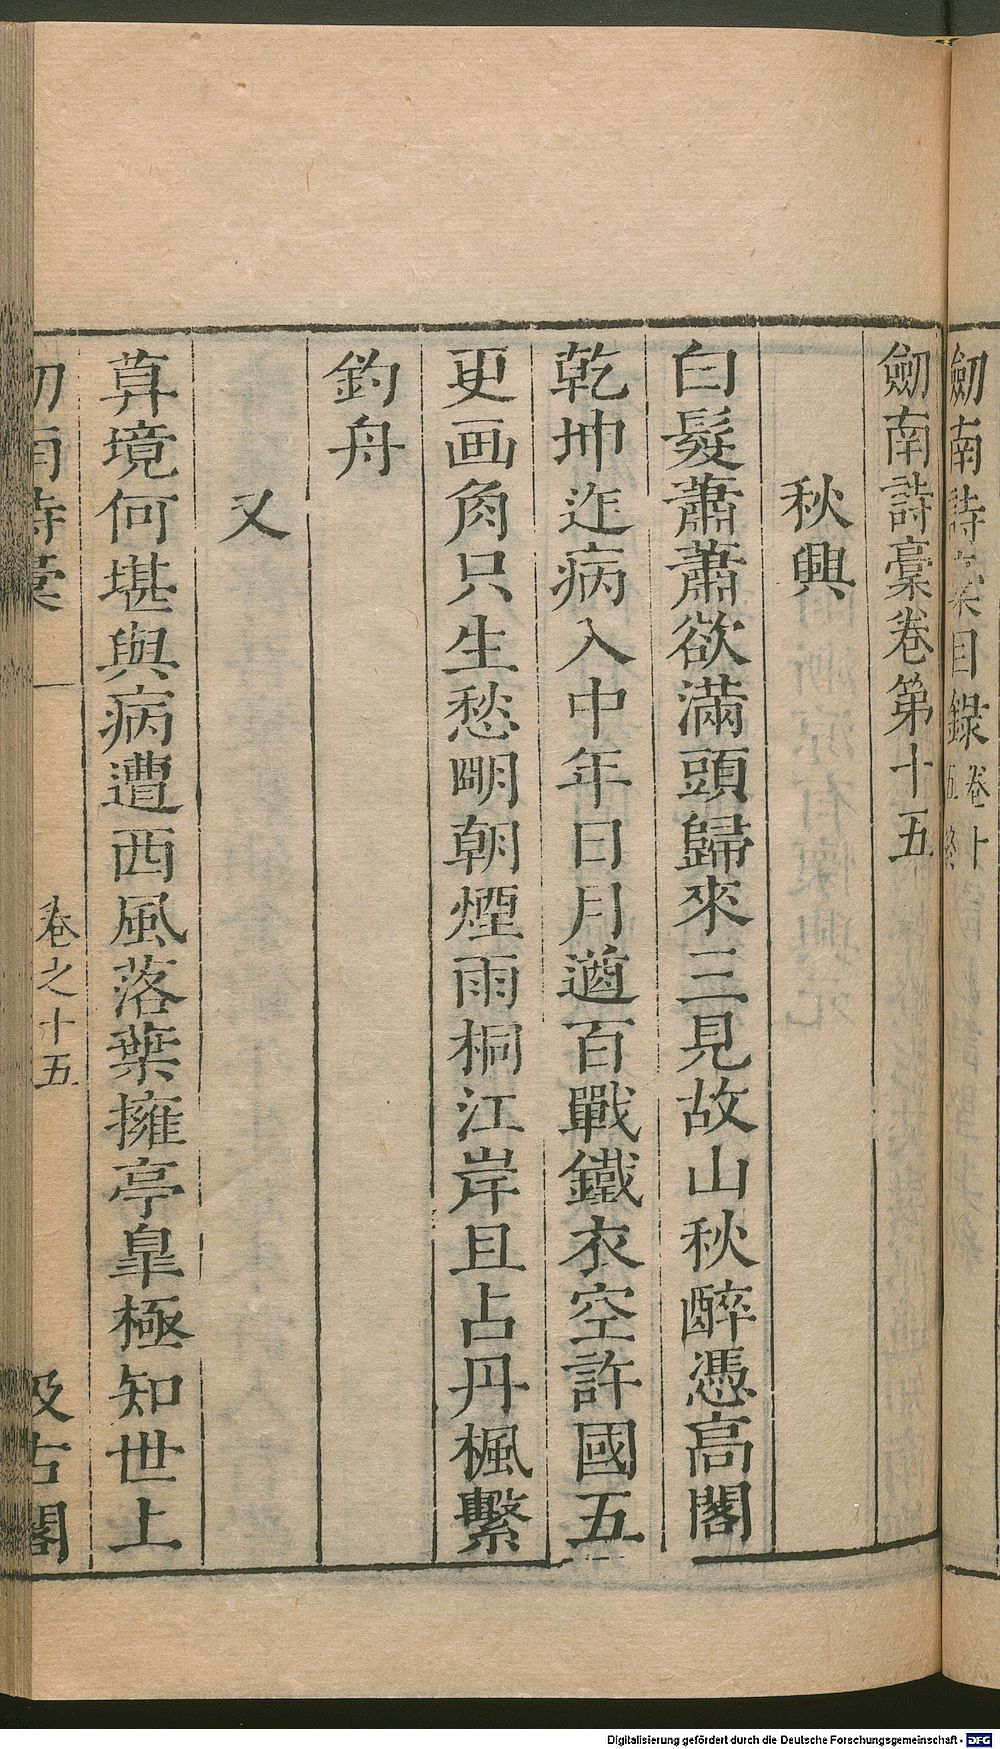 劒南詩稾目錄卷十
五終
劒南詩稾卷第十五
秋興
白髮蕭蕭欲滿頭歸來三見故山秋醉憑高閣
乾坤迮病入中年日月遒百戰鐵衣空許國五
更画角只生愁明朝煙雨桐江岸且占丹楓繫
釣舟
又
莫境何堪與病遭西風落葉擁亭臯極知世上
南詩稾 一 卷之十五 汲古閣
Digitalisierung gefördert durch die Deutsche Forschungsgemeinschaft - DFG